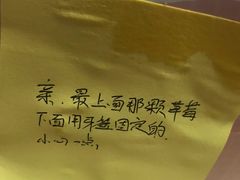 亲、最上面那颗草莓
下面用牙签固定的.
小心一点,